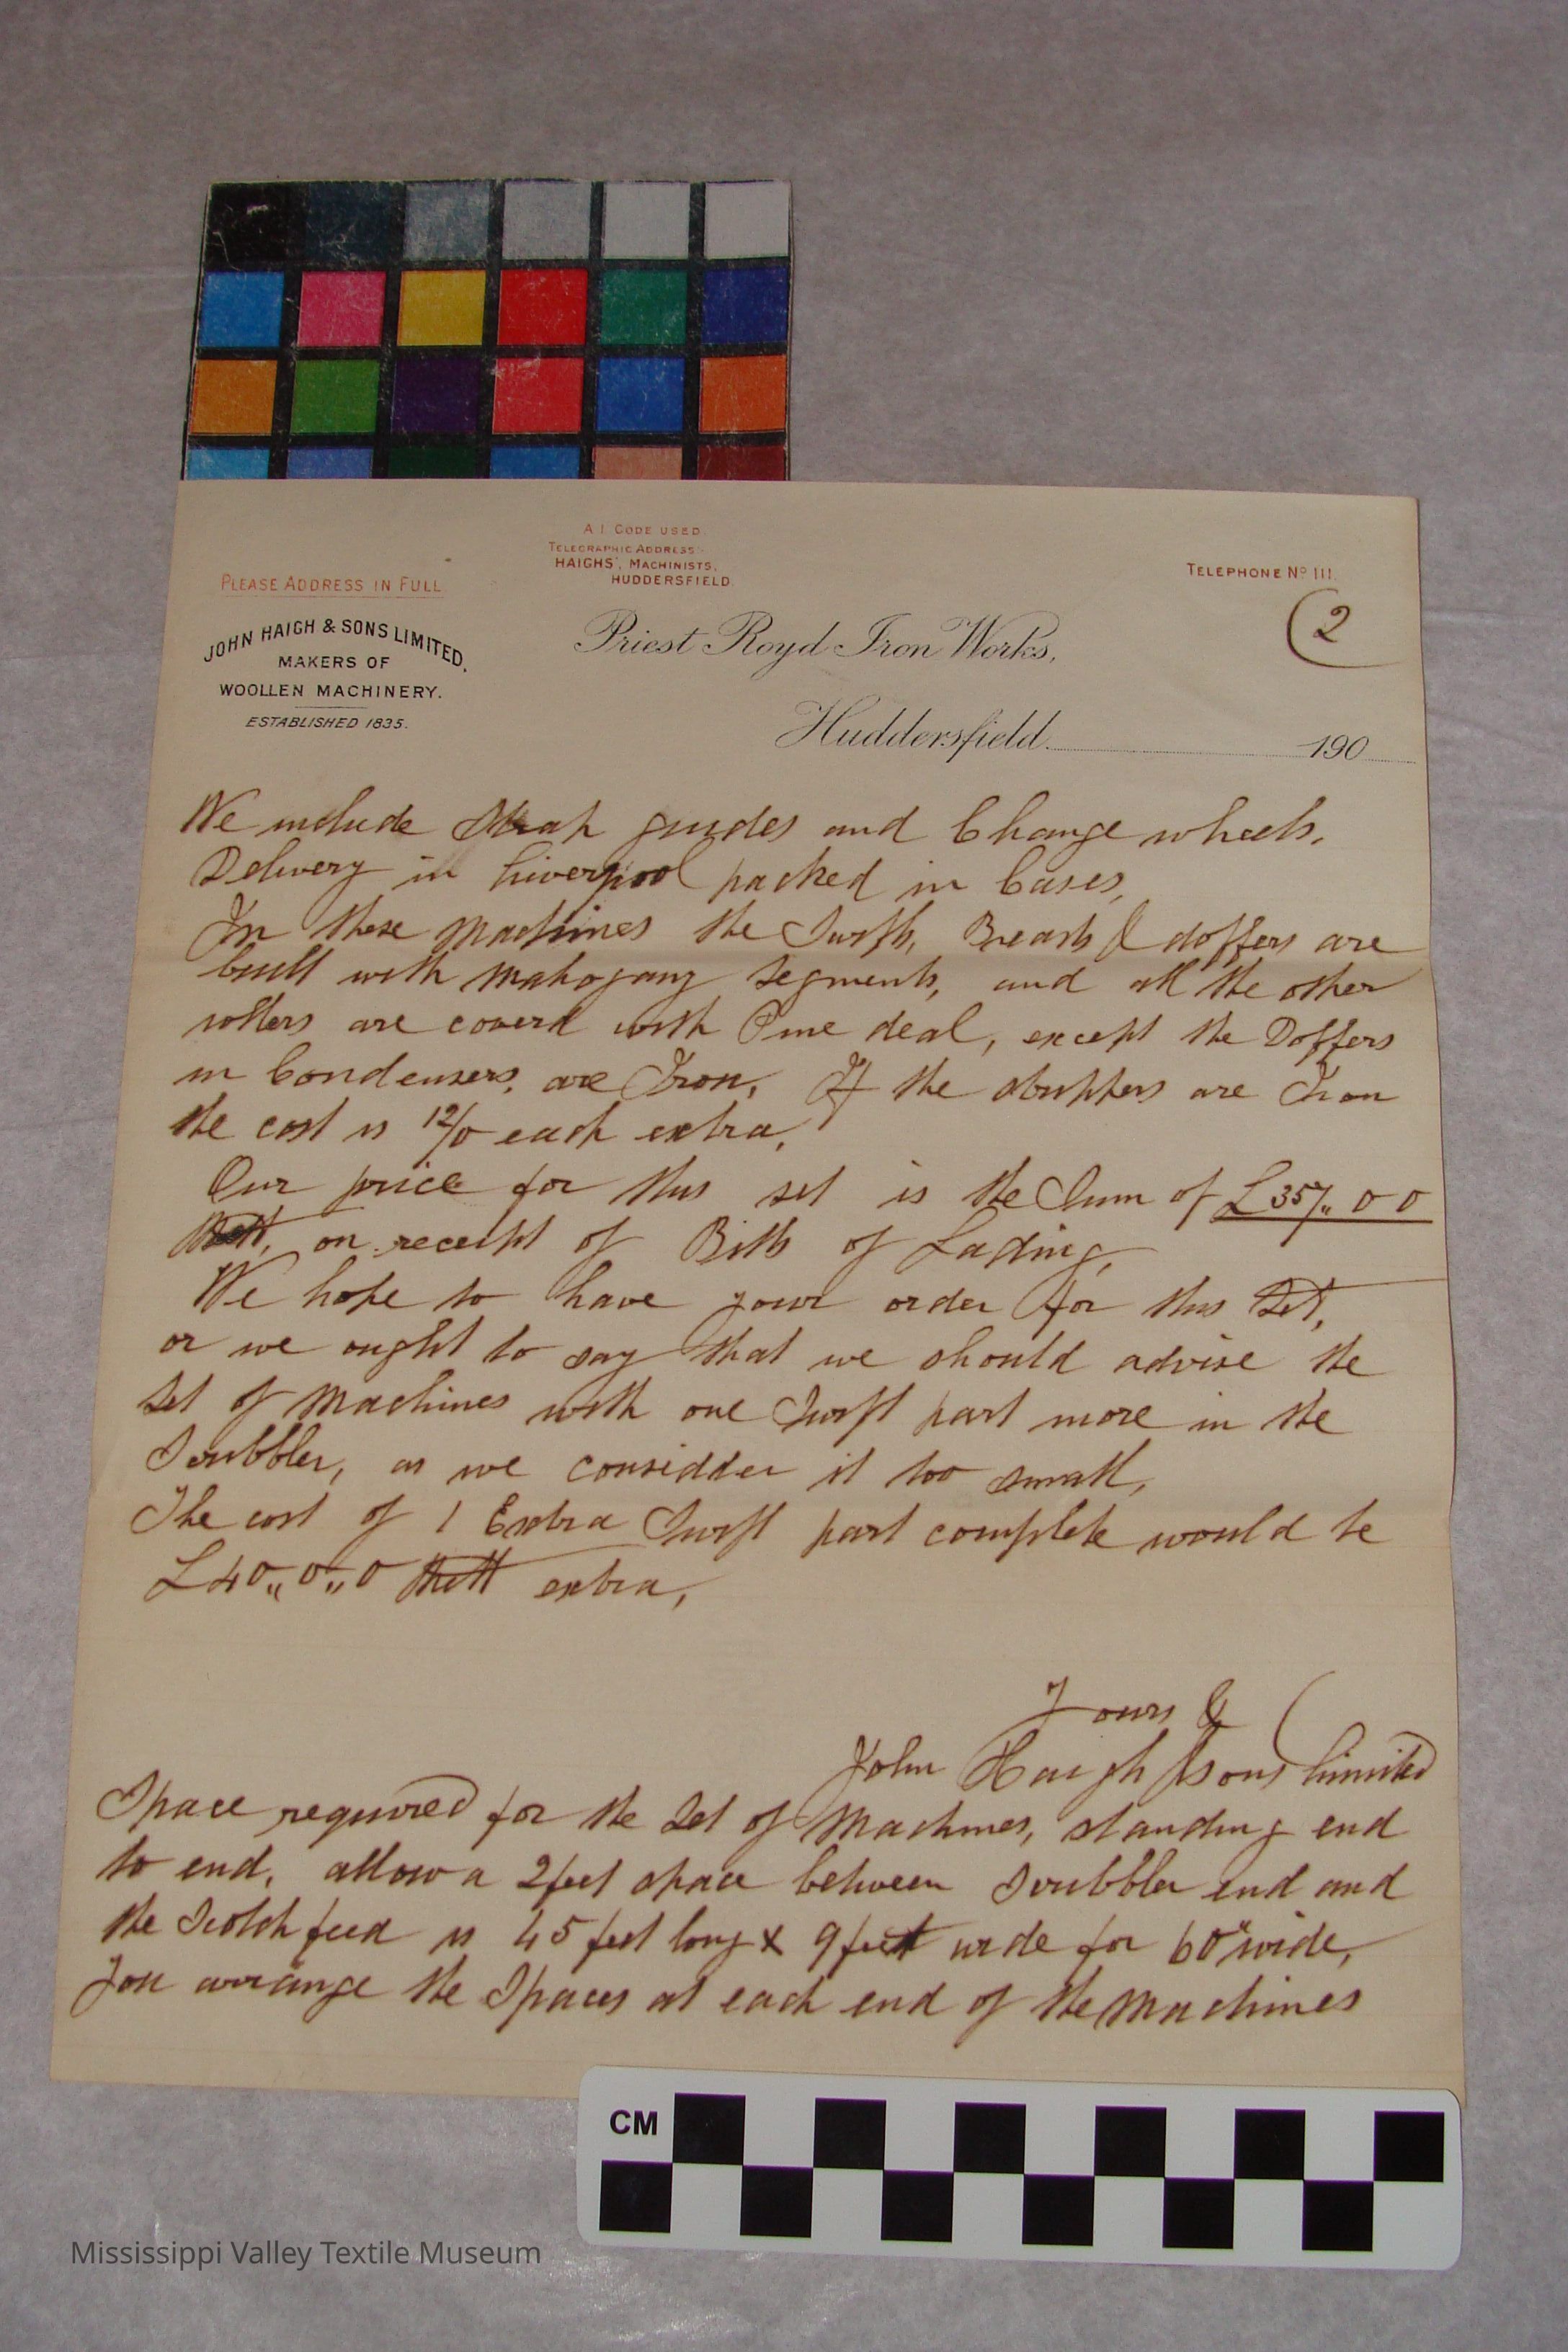 A I CODE USED.
TELEGRAPHIC ADDRESS:-
HAIGHS', MACHINISTS,
HUDDERSFIELD.
TELEPHONE No 111.
PLEASE ADDRESS IN FULL
2
JOHN HAIGH & SONS LIMITED,
MAKERS OF
WOOLLEN MACHINERY.
ESTABLISHED 1835.
Priest Royd Iron Works,
Huddersfield 190
We include Strap guides and Change wheels.
Delivery in Liverpool packed in Cases,
In these Machines the Swifts, Breasts & doffers are
built with Mahogany segments, and all the other
rollers are coverd with Pine deal, except the Doffers
in Condensers, are Iron, If the strippers are Iron
the cost is 12/0 each extra,
Our price for this set is the Sum of £357,, 0 0
Nett, on receipt of Bills of Lading,
We hope to have your order for this Set,
or we ought to say that we should advise the
set of Machines with one Swift part more in the
Scribbler, as we considder it too small,
The cost of 1 Extra Swift part complete would be
£40,,0,,0 Nett extra,
Yours &
John Haigh & Sons Limited
Space required for the Set of Machines, standing end
to end, allow a 2 feet space between Scribbler end and
the Scotch feed is 45 feet long x 9 feet wide for 60" wide,
you arrange the Spaces at each end of the Machines
CM
Mississippi Valley Textile Museum